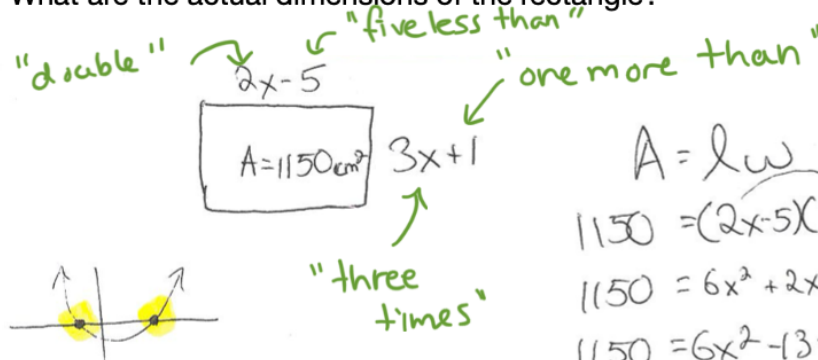 What are the actual dimensions of the rectangle?
"double"
"five less than"
2x-5
"one more than"
A=1150cm²
3x+1
"three
times"
A = lw
1150 =(2x-5)(
1150 = 6x² +2x
1150 =6x²-13